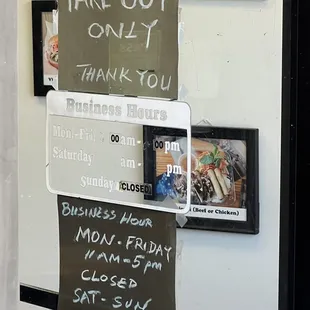 TAKE OUT
ONLY
THANK YOU
Business Hours
Mon-Fri 00 am- 00 pm
Saturday am- pm
Sunday CLOSED
(Beef or Chicken)
BUSINESS HOUR
MON-FRIDAY
11AM-5pm
CLOSED
SAT-SUN